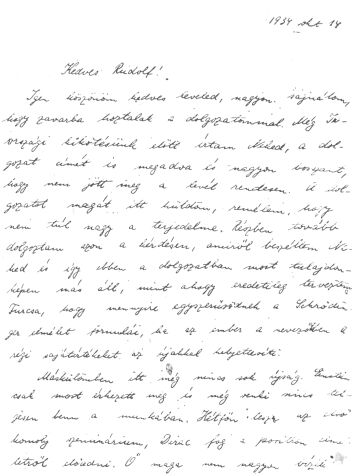 1934 okt 14
Kedves Rudolf!
Igen köszönöm kedves leveled, nagyon sajnálom,
hogy zavarba hoztalak a dolgozatommal. Még
országi kikötésünk előtt írtam Neked, a dol-
gozat címét is megadva és nagyon bosszant,
hogy nem jött meg a levél rendesen. A dol-
gozatot magát itt küldöm, remélem, hogy
nem túl nagy a terjedelme. Közben tovább
dolgoztam azon a kérdésen, amiről beszéltem Ne-
ked és így ebben a dolgozatban most tulajdon-
képen más áll, mint ahogy eredetileg terveztem.
Furcsa, hogy mennyire egyszerűsödnek a Schrödin-
ger elmélet formulái, ha az ember a nevezőkben a
régi sajátértékeket az újakkal helyettesíti.
Máskülönben itt még nincs sok újság. Einstein
csak most érkezett meg és még senki nincs tel-
jesen benn a munkában. Hétfőn lesz az első
komoly szeminárium, Dirac fog a positron elmé-
letről előadni. Ő maga nem nagyon